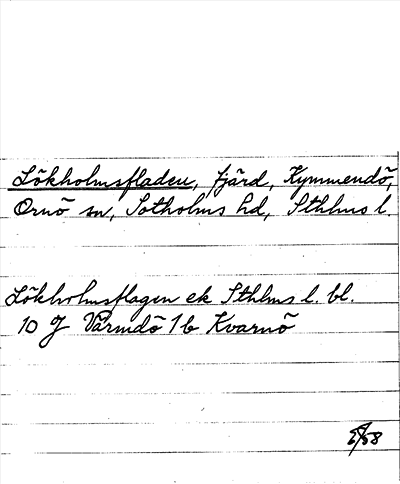 Lökholmsfladen, fjärd, Kymmendö,
Ornö sn, Sotholms hd, Sthlms l.
Lökholmsflagen ek Sthlms l. bl.
10 J Värmdö 1b Kvarnö